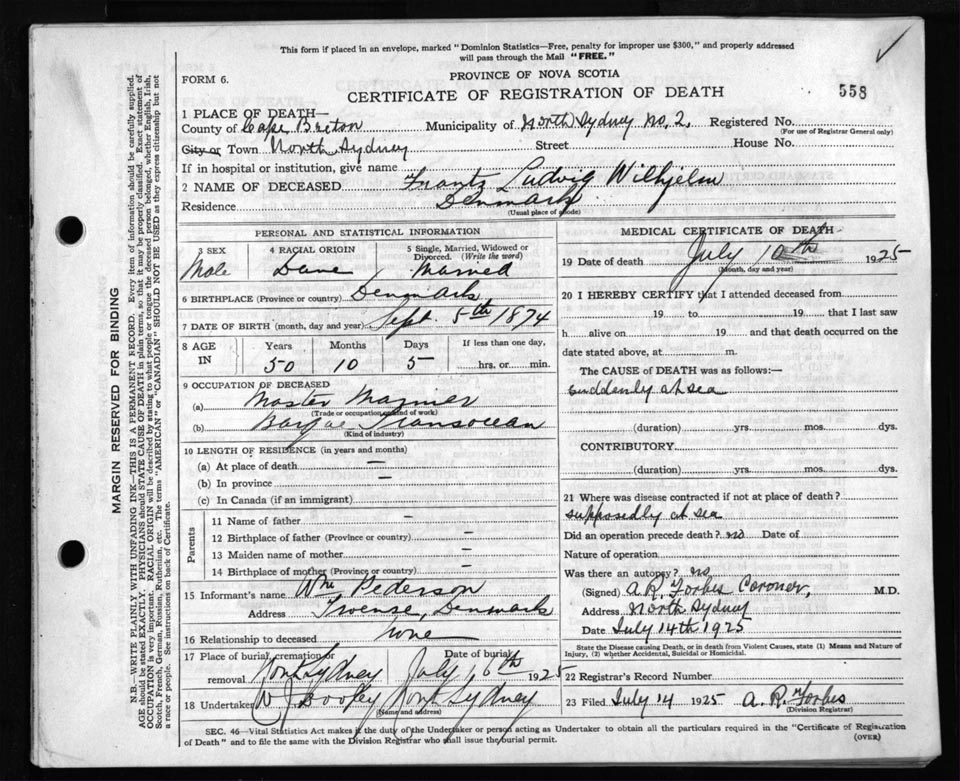 This form if placed in an envelope, marked "Dominion Statistics—Free, penalty for improper use $300," and properly addressed
will pass through the Mail "FREE."
FORM 6.
PROVINCE OF NOVA SCOTIA
CERTIFICATE OF REGISTRATION OF DEATH
558
1 PLACE OF DEATH—
County of Cape Breton Municipality of North Sydney No. 2. Registered No.
(For use of Registrar General only)
City or Town North Sydney Street House No.
If in hospital or institution, give name
2 NAME OF DECEASED Frantz Ludvig Wilhjelm
Residence Denmark
(Usual place of abode)
PERSONAL AND STATISTICAL INFORMATION
3 SEX 4 RACIAL ORIGIN 5 Single, Married, Widowed or
Divorced. (Write the word)
Male Dane Married
6 BIRTHPLACE (Province or country) Denmark
7 DATE OF BIRTH (month, day and year) Sept. 5th 1874
8 AGE IN Years Months Days If less than one day,
50 10 5 hrs. or min.
9 OCCUPATION OF DECEASED
(a) Master Mariner
(Trade or occupation, kind of work)
(b) Barque Transocean
(Kind of industry)
10 LENGTH OF RESIDENCE (in years and months)
(a) At place of death —
(b) In province —
(c) In Canada (if an immigrant)
Parents
11 Name of father —
12 Birthplace of father (Province or country) —
13 Maiden name of mother —
14 Birthplace of mother (Province or country) —
15 Informant's name Wm Pederson
Address Denmark
16 Relationship to deceased none
17 Place of burial, cremation or removal Date of burial
North Sydney July 16th 1925
18 Undertaker North Sydney
(Name and address)
MEDICAL CERTIFICATE OF DEATH
19 Date of death July 10th 1925
(Month, day and year)
20 I HEREBY CERTIFY that I attended deceased from
19 to 19 that I last saw
h alive on 19 and that death occurred on the
date stated above, at m.
The CAUSE OF DEATH was as follows:—
Suddenly at sea
(duration) yrs. mos. dys.
CONTRIBUTORY.
(duration) yrs. mos. dys.
21 Where was disease contracted if not at place of death?
supposedly at sea
Did an operation precede death? no Date of
Nature of operation
Was there an autopsy? no
(Signed) A. R. Forbes Coroner, M.D.
Address North Sydney
Date July 14th 1925
State the Disease causing Death, or in death from Violent Causes, state (1) Means and Nature of
Injury, (2) whether Accidental, Suicidal or Homicidal.
22 Registrar's Record Number
23 Filed July 14 1925 A. R. Forbes
(Division Registrar)
SEC. 46—Vital Statistics Act makes it the duty of the Undertaker or person acting as Undertaker to obtain all the particulars required in the "Certificate of Registration
of Death" and to file the same with the Division Registrar who shall issue the burial permit.
(OVER)
MARGIN RESERVED FOR BINDING
N.B.—WRITE PLAINLY WITH UNFADING INK—THIS IS A PERMANENT RECORD. Every item of information should be carefully supplied.
AGE should be stated EXACTLY. PHYSICIANS should STATE CAUSE OF DEATH in plain terms, so that it may be properly classified. Exact statement of
OCCUPATION is very important. RACIAL ORIGIN will be described by stating to what people or tongue the deceased person belonged, whether English, Irish,
Scotch, French, German, Russian, Ruthenian, etc. The terms "AMERICAN" or "CANADIAN" SHOULD NOT BE USED as they express citizenship but not
a race or people. See instructions on back of Certificate.